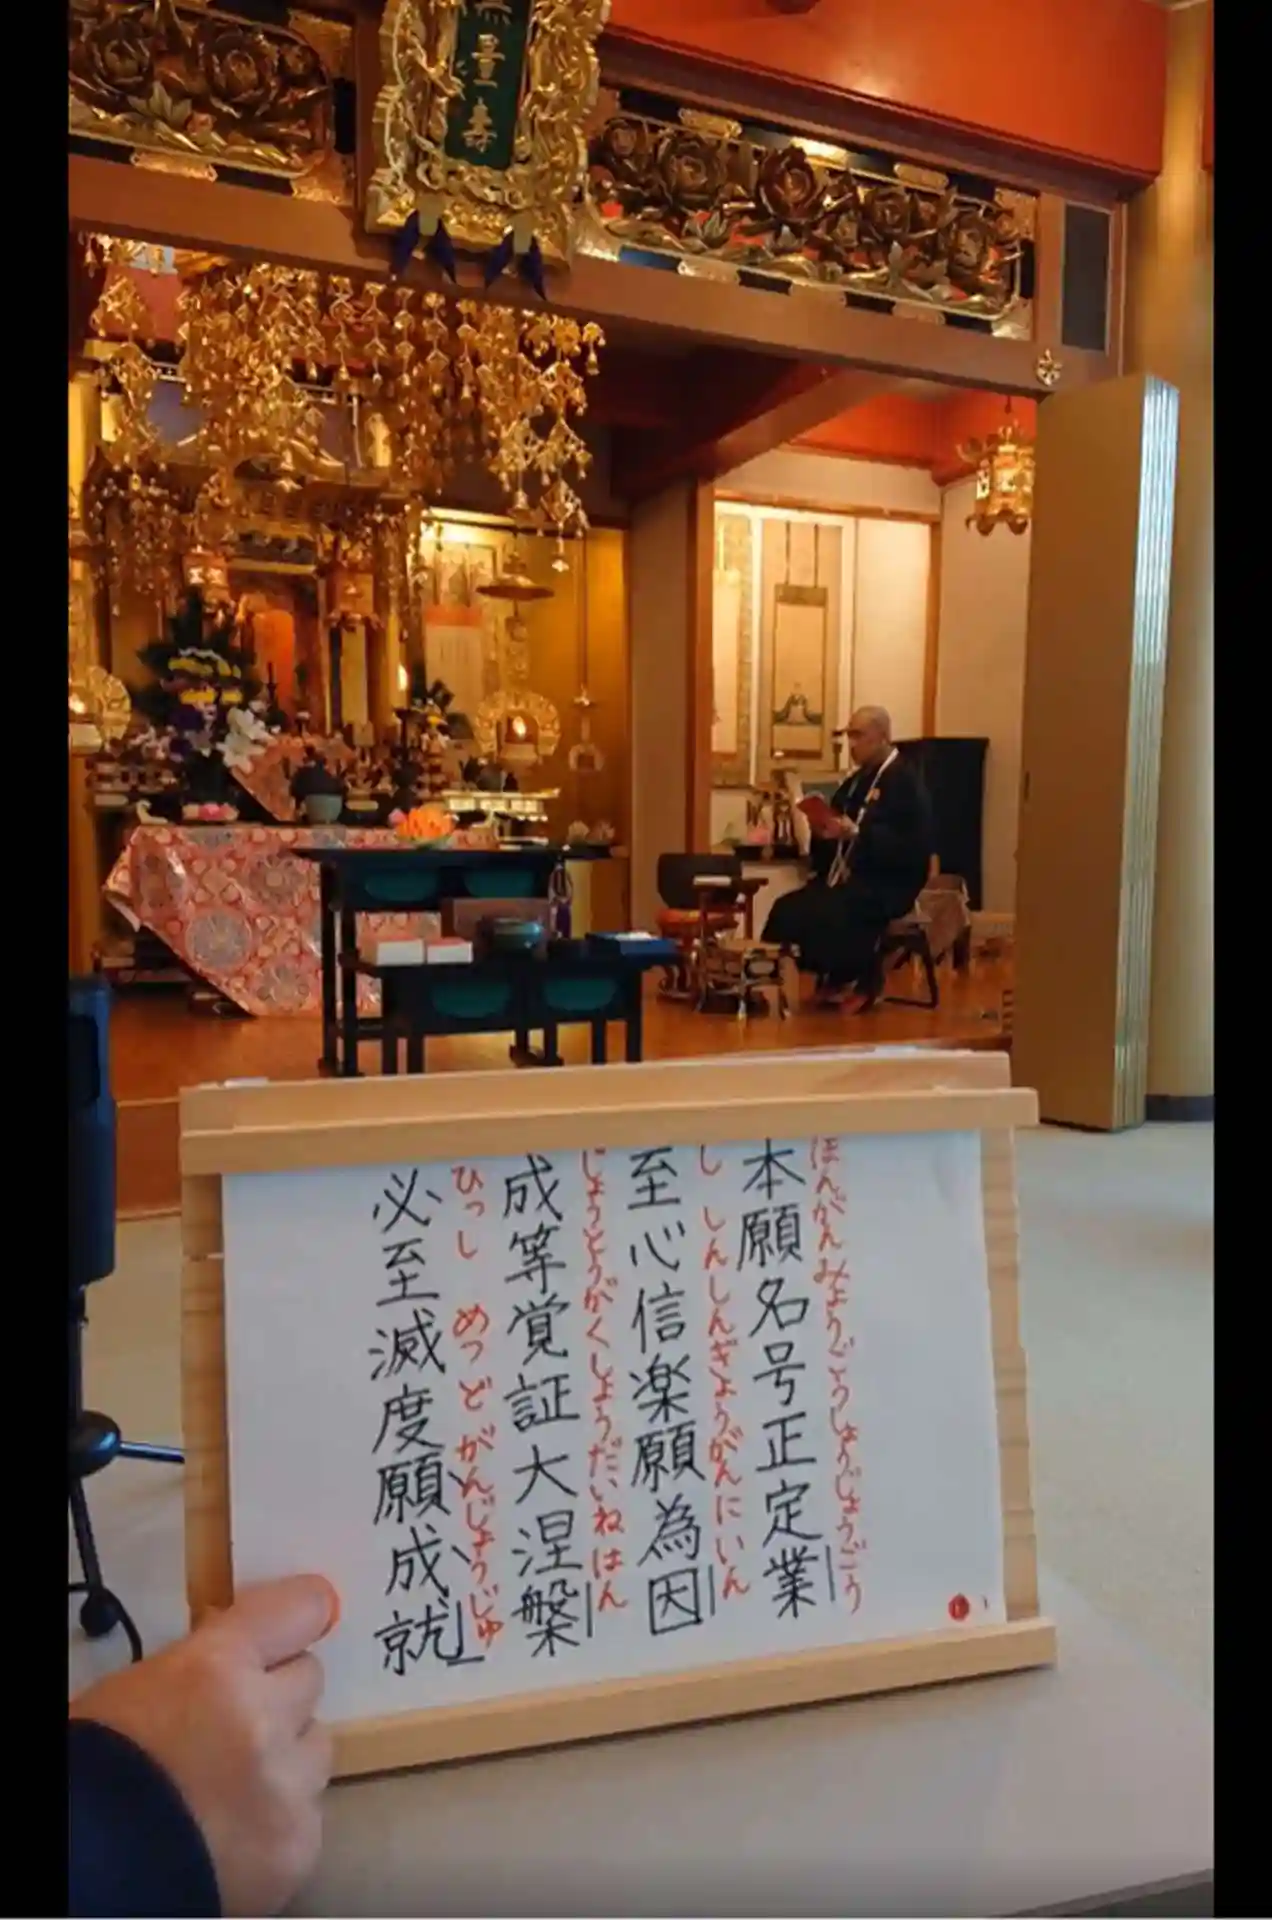 無量寿
ほんがんみょうごうしょうじょうごう
本願名号正定業
し しんしんぎょうがんにいん
至心信楽願為因
じょうとうがくしょうだいねはん
成等覚証大涅槃
ひっし めつ ど がんじょうじゅ
必至滅度願成就